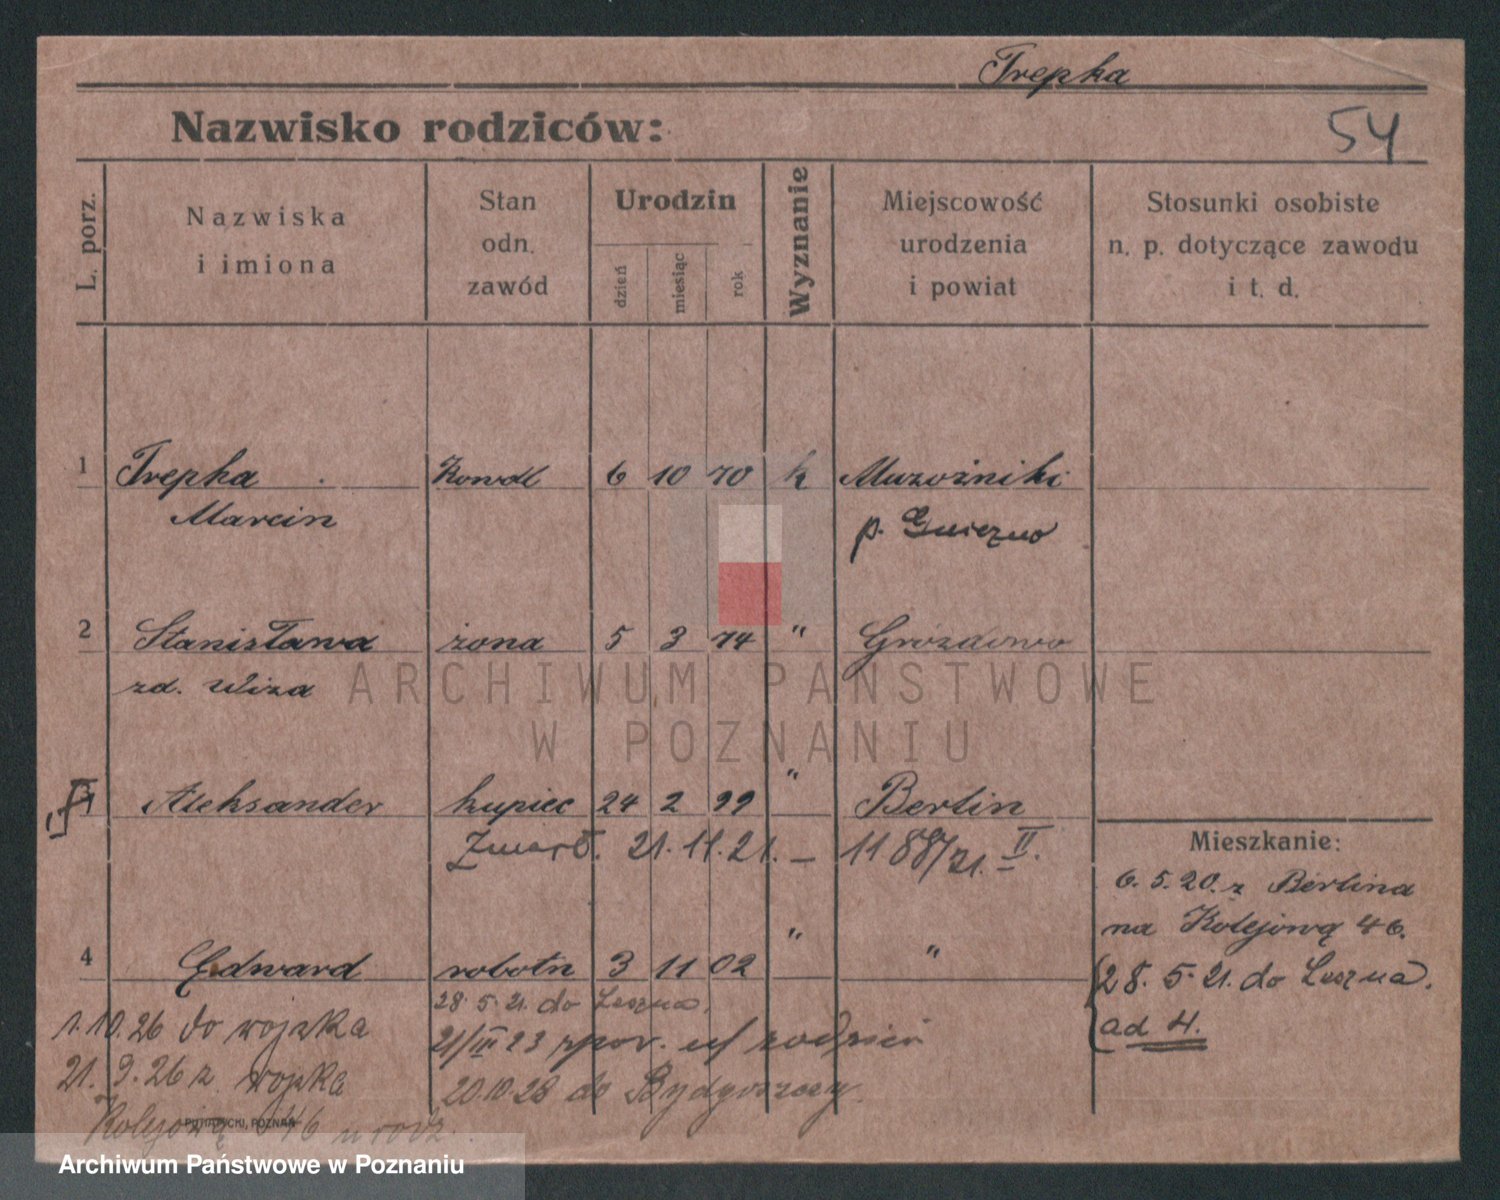 Trepka
Nazwisko rodziców:
54
L. porz.
Nazwiska
i imiona
Stan
odn.
zawód
Urodzin
dzień
miesiąc
rok
Wyznanie
Miejscowość
urodzenia
i powiat
Stosunki osobiste
n. p. dotyczące zawodu
i t. d.
1 Trepka Kowdl 6 10 70 k
Marcin p. Gniezno
2 Stanisława żona 5 3 74 " Grozdowo
zd. Wiza
ARCHIWUM PAŃSTWOWE
W POZNANIU
Aleksander kupiec 24 2 99 " Berlin
Zmarł. 21.11.21. – 1188/21. II.
Mieszkanie:
6.5.20. z Berlina
na Kolejową 46.
28.5.21. do Leszna.
ad 4.
4 Edward robotn 3 11 02 " "
28.5.21. do Leszna.
1.10.26 do wojska
21/III 23 rodzici
21.9.26 z wojska
20.10.28 do Bydgoszczy.
Kolejową 46 u rodz.
PUTIATYCKI, POZNAŃ
Archiwum Państwowe w Poznaniu